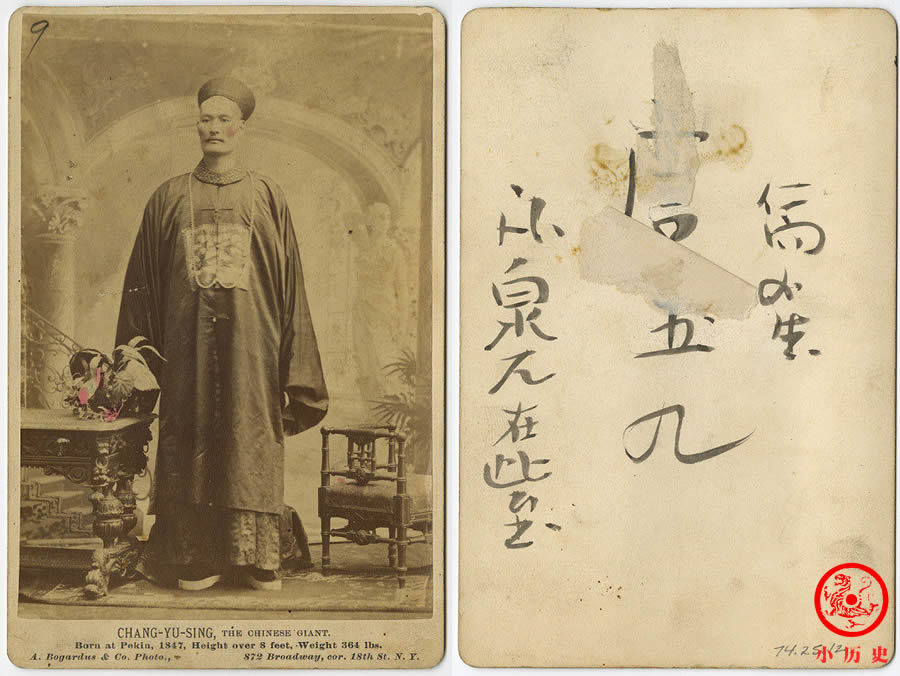 9
CHANG-YU-SING, THE CHINESE GIANT.
Born at Pekin, 1847, Height over 8 feet, Weight 364 lbs.
A. Bogardus & Co. Photo., 872 Broadway, cor. 18th St. N. Y.
五九
泉 在此
74.25.12
小历史